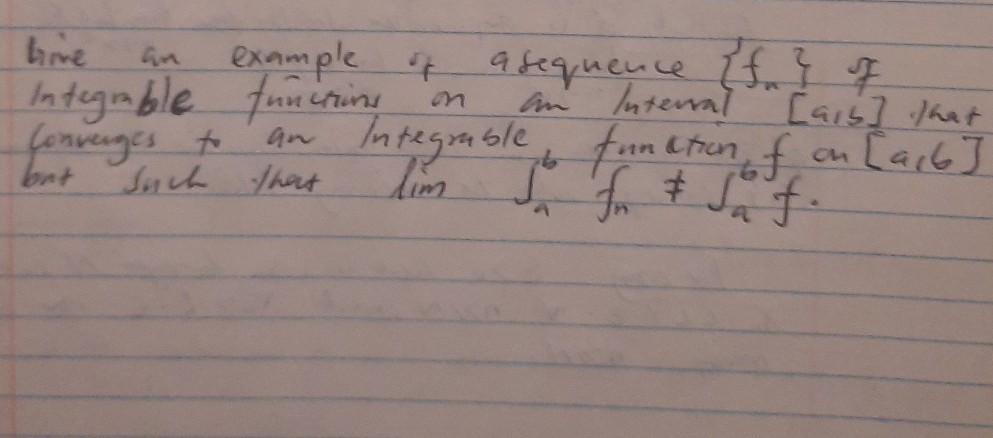 Give an example of a sequence {fn} of
Integrable functions on an Interval [a,b] that
Converges to an Integrable function f on [a,b]
but such that lim ∫ₐᵇ fn ≠ ∫ₐᵇ f.